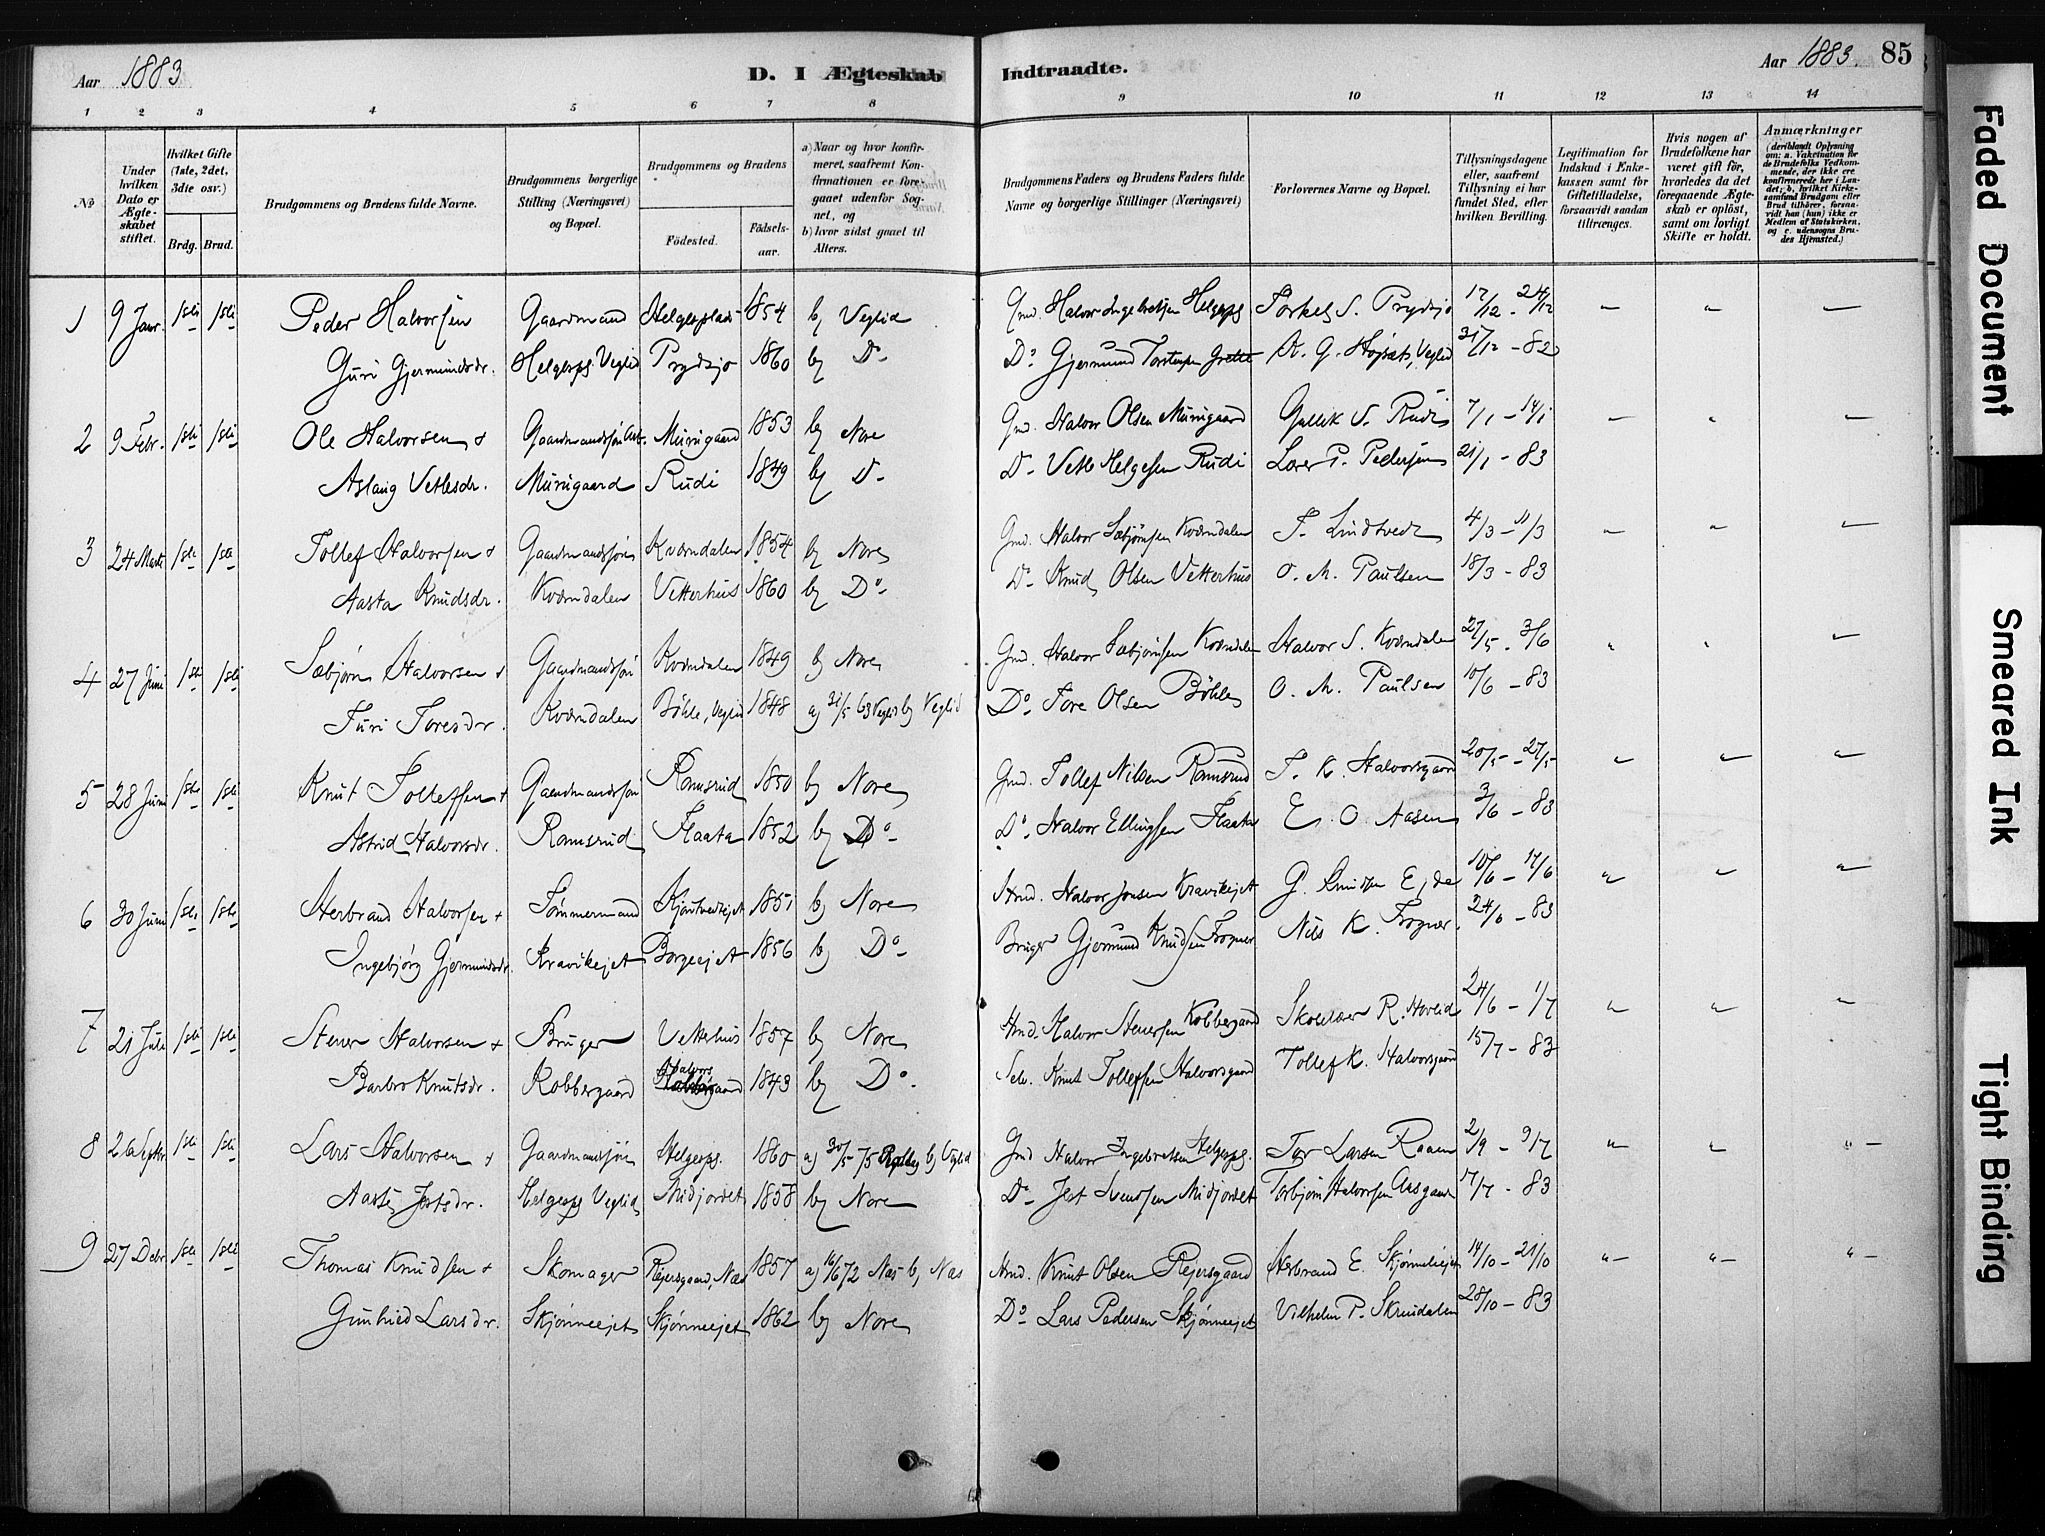 Aar 1883
D. I Ægteskab
Indtraadte.
Aar 1883. 85
1 2 3 4 5 6 7 8 9 10 11 12 13 14
No
Under hvilken Dato er Ægteskabet stiftet.
Hvilket Gifte (1ste, 2det, 3die osv.)
Brdg. Brud.
Brudgommens og Brudens fulde Navne.
Brudgommens borgerlige Stilling (Næringsvei) og Bopæl.
Brudgommens og Brudens
Födested.
Födselsaar.
a) Naar og hvor konfirmeret, saafremt Konfirmationen er foregaaet udenfor Sognet, og
b) hvor sidst gaaet til Alters.
Brudgommens Faders og Brudens Faders fulde Navne og borgerlige Stillinger (Næringsvei)
Forlovernes Navne og Bopæl.
Tillysningsdagene eller, saafremt Tillysning ei har fundet Sted, efter hvilken Bevilling.
Legitimation for Indskud i Enkekassen samt for Giftetilladelse, forsaavidt saadan tiltrænges.
Hvis nogen af Brudefolkene har været gift för, hvorledes da det foregaaende Ægteskab er oplöst, samt om lovligt Skifte er holdt.
Anmærkninger
(deriblandt Oplysning om: a. Vakcination for de Brudefolks Vedkommende, der ikke ere konfirmerede her i Landet; b, hvilket Kirkesamfund Brudgom eller Brud tilhörer, forsaavidt han (hun) ikke er Medlem af Statskirken, og c. udensogns Brudes Hjemsted.)
1 9 Janr. 1ste 1ste Peder Halvorsen Gaardmand Helgerplads 1854 b) Veglid Gmd. Halvor Ingebretsen Helgerpl Torkel S. Prydsjo 17/12 - 24/12
Guri Gjermundsdr. Helgerpl. Veglid Prydsjo 1860 b) Do Do Gjermund Torstensen 31/12 - 82
2 9 Febr. 1ste 1ste Ole Halvorsen + Gaardmandssøn Murigaard 1853 b) Nore Gmd. Halvor Olsen Murigaard Gullik V. Rudi 7/1 - 14/1
Aslaug Vetlesdr. Murigaard Rudi 1849 b) Do Do Vetle Helgesen Rudi Lærer P. Pedersen 21/1 - 83
3 24 Marts 1ste 1ste Tollef Halvorsen + Gaardmandssøn Kværndalen 1854 b) Nore Gmd. Halvor Sæbjørnsen Kværndalen T. Lindtvedt 4/3 - 11/3
Aasta Knudsdr. Kværndalen Vetterhus 1860 b) Do Do Knud Olsen Vetterhus O. M. Paulsen 18/3 - 83
4 27 Juni 1ste 1ste Sæbjørn Halvorsen + Gaardmandssøn Kværndalen 1849 b) Nore Gmd. Halvor Sæbjørnsen Kværndalen Halvor S. Kværndalen 27/5 - 3/6
Turi Toresdr. Kværndalen Bøhle, Veglid 1848 a) 31/5 63 Veglid b) Veglid Do Tore Olsen Bøhle O. M. Paulsen 10/6 - 83
5 28 Juni 1ste 1ste Knut Tollefsen + Gaardmandssøn Ramsrud 1850 b) Nore Gmd. Tollef Nilsen Ramsrud T. K. Halvorsgaard 20/5 - 27/5
Astrid Halvorsdr. Ramsrud Flaata 1852 b) Do Do Halvor Ellingsen Flaata E. O. Aasen 3/6 - 83
6 30 Juni 1ste 1ste Herbrand Halvorsen + Tømmermand 1851 b) Nore Hmd. Halvor Jonsen Kravikejet G. Knudsen Ejde 10/6 - 17/6
Ingebjørg Gjermundsdr. Kravikejet Borgeejet 1856 b) Do Bruger Gjermund Knudsen Frogner Nils K. Frogner. 24/6 - 83
7 21 Juli 1ste 1ste Stener Halvorsen + Bruger Vetterhus 1857 b) Nore Hmd. Halvor Stenersen Kobbergaard Skolelærer R. Hovlid 24/6 - 1/7
Barbro Knutsdr. Kobbergaard Halvorsgaard 1843 b) Do Selv. Knut Tollefsen Halvorsgaard Tollef K. Halvorsgaard 15/7 - 83
8 26 Septbr 1ste 1ste Lars Halvorsen + Gaardmandssøn Helgerpl. 1860 a) 30/5 75 b) Veglid Gmd Halvor Ingebretsen Helgerpl. Tor Larsen Raaen 2/9 - 9/7
Aaste Jostsdr. Helgerpl Veglid Midjordet 1858 b) Nore Do Jost Svendsen Midjordet Torbjørn Halvorsen Aasgaard 17/7 - 83
9 27 Decbr 1ste 1ste Thomas Knudsen + Skomager Rejersgaard, Næs 1857 a) 16/6 72 Næs b) Næs Hmd. Knut Olsen Rejersgaard Herbrand E. Skjønneejet 14/10 - 21/10
Gunhild Larsdr. Skjønneejet Skjønneejet 1862 b) Nore Do Lars Pedersen Skjønneejet Vilhelm P. Skrudalen 28/10 - 83
Faded Document
Smeared Ink
Tight Binding